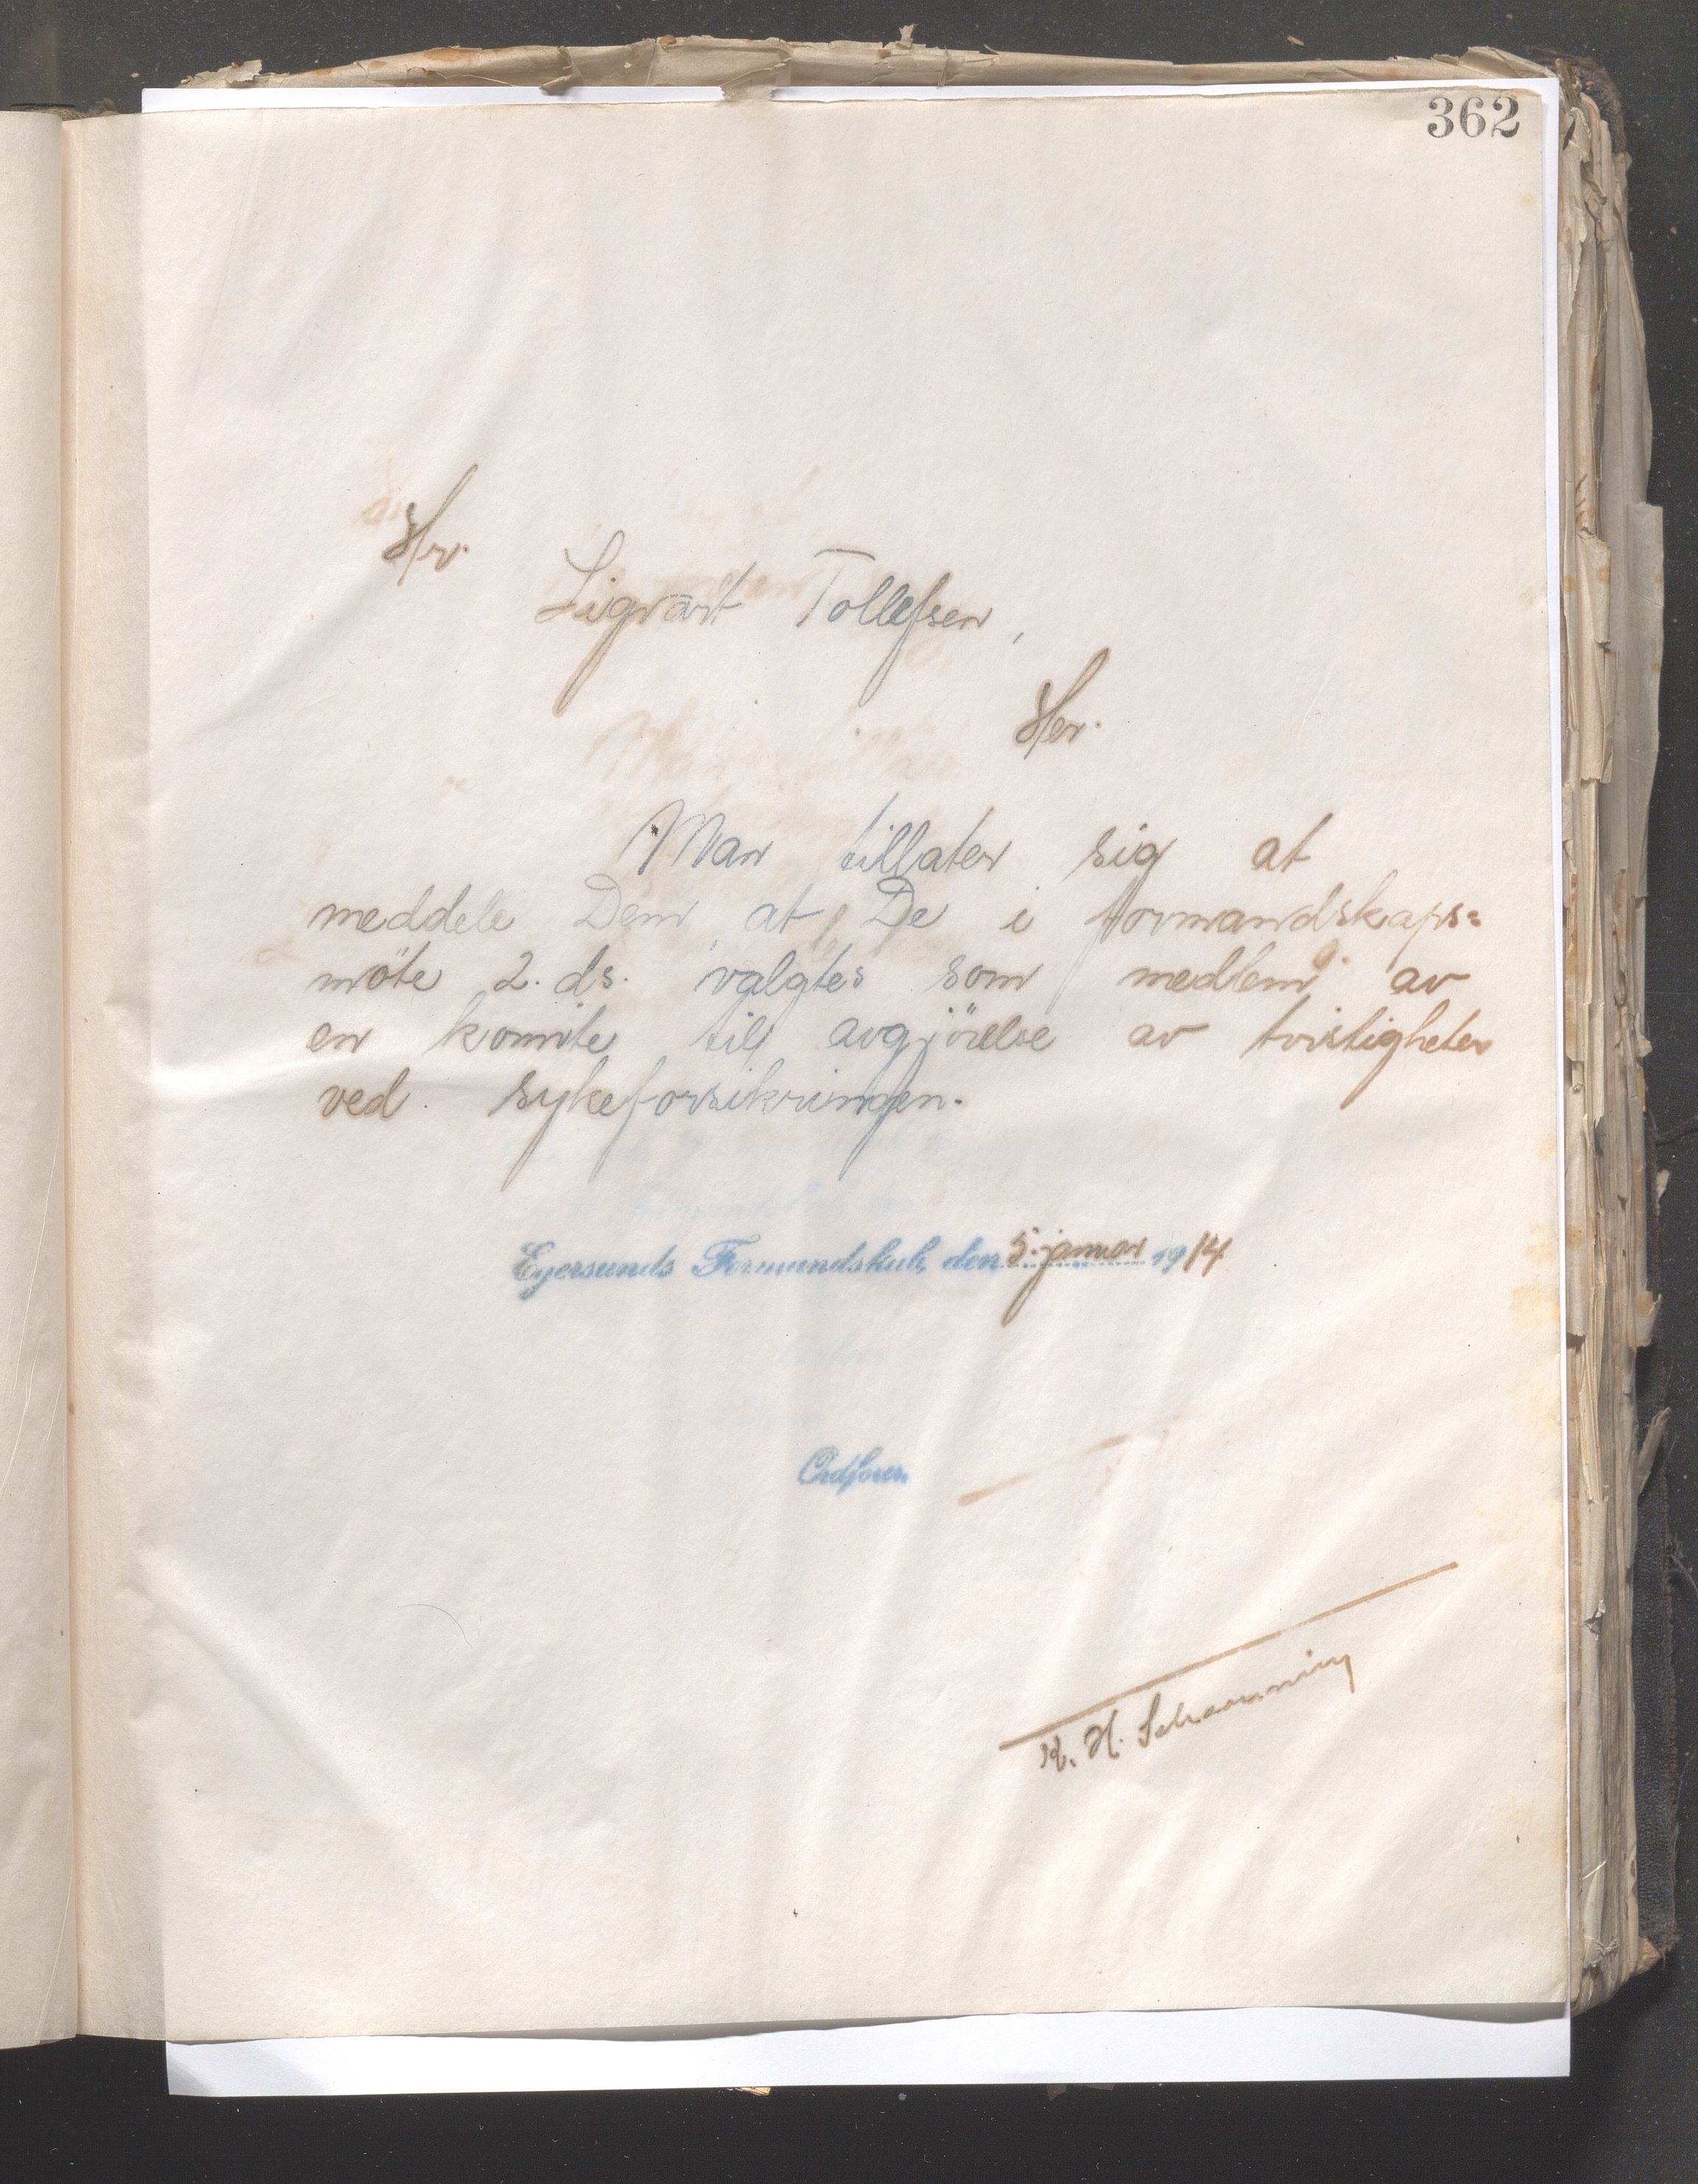 362
Hr.
Sigvart Tollefsen,
Her.
Man tillater sig at
meddele Dem, at De i formandskaps=
møte 2. ds. valgtes som medlem av
en komite til avgjörelse av tvistigheter
ved sykeforsikringen.
Egersunds Formandskab, den 5. januar 1914
Ordfører
H. Schanning